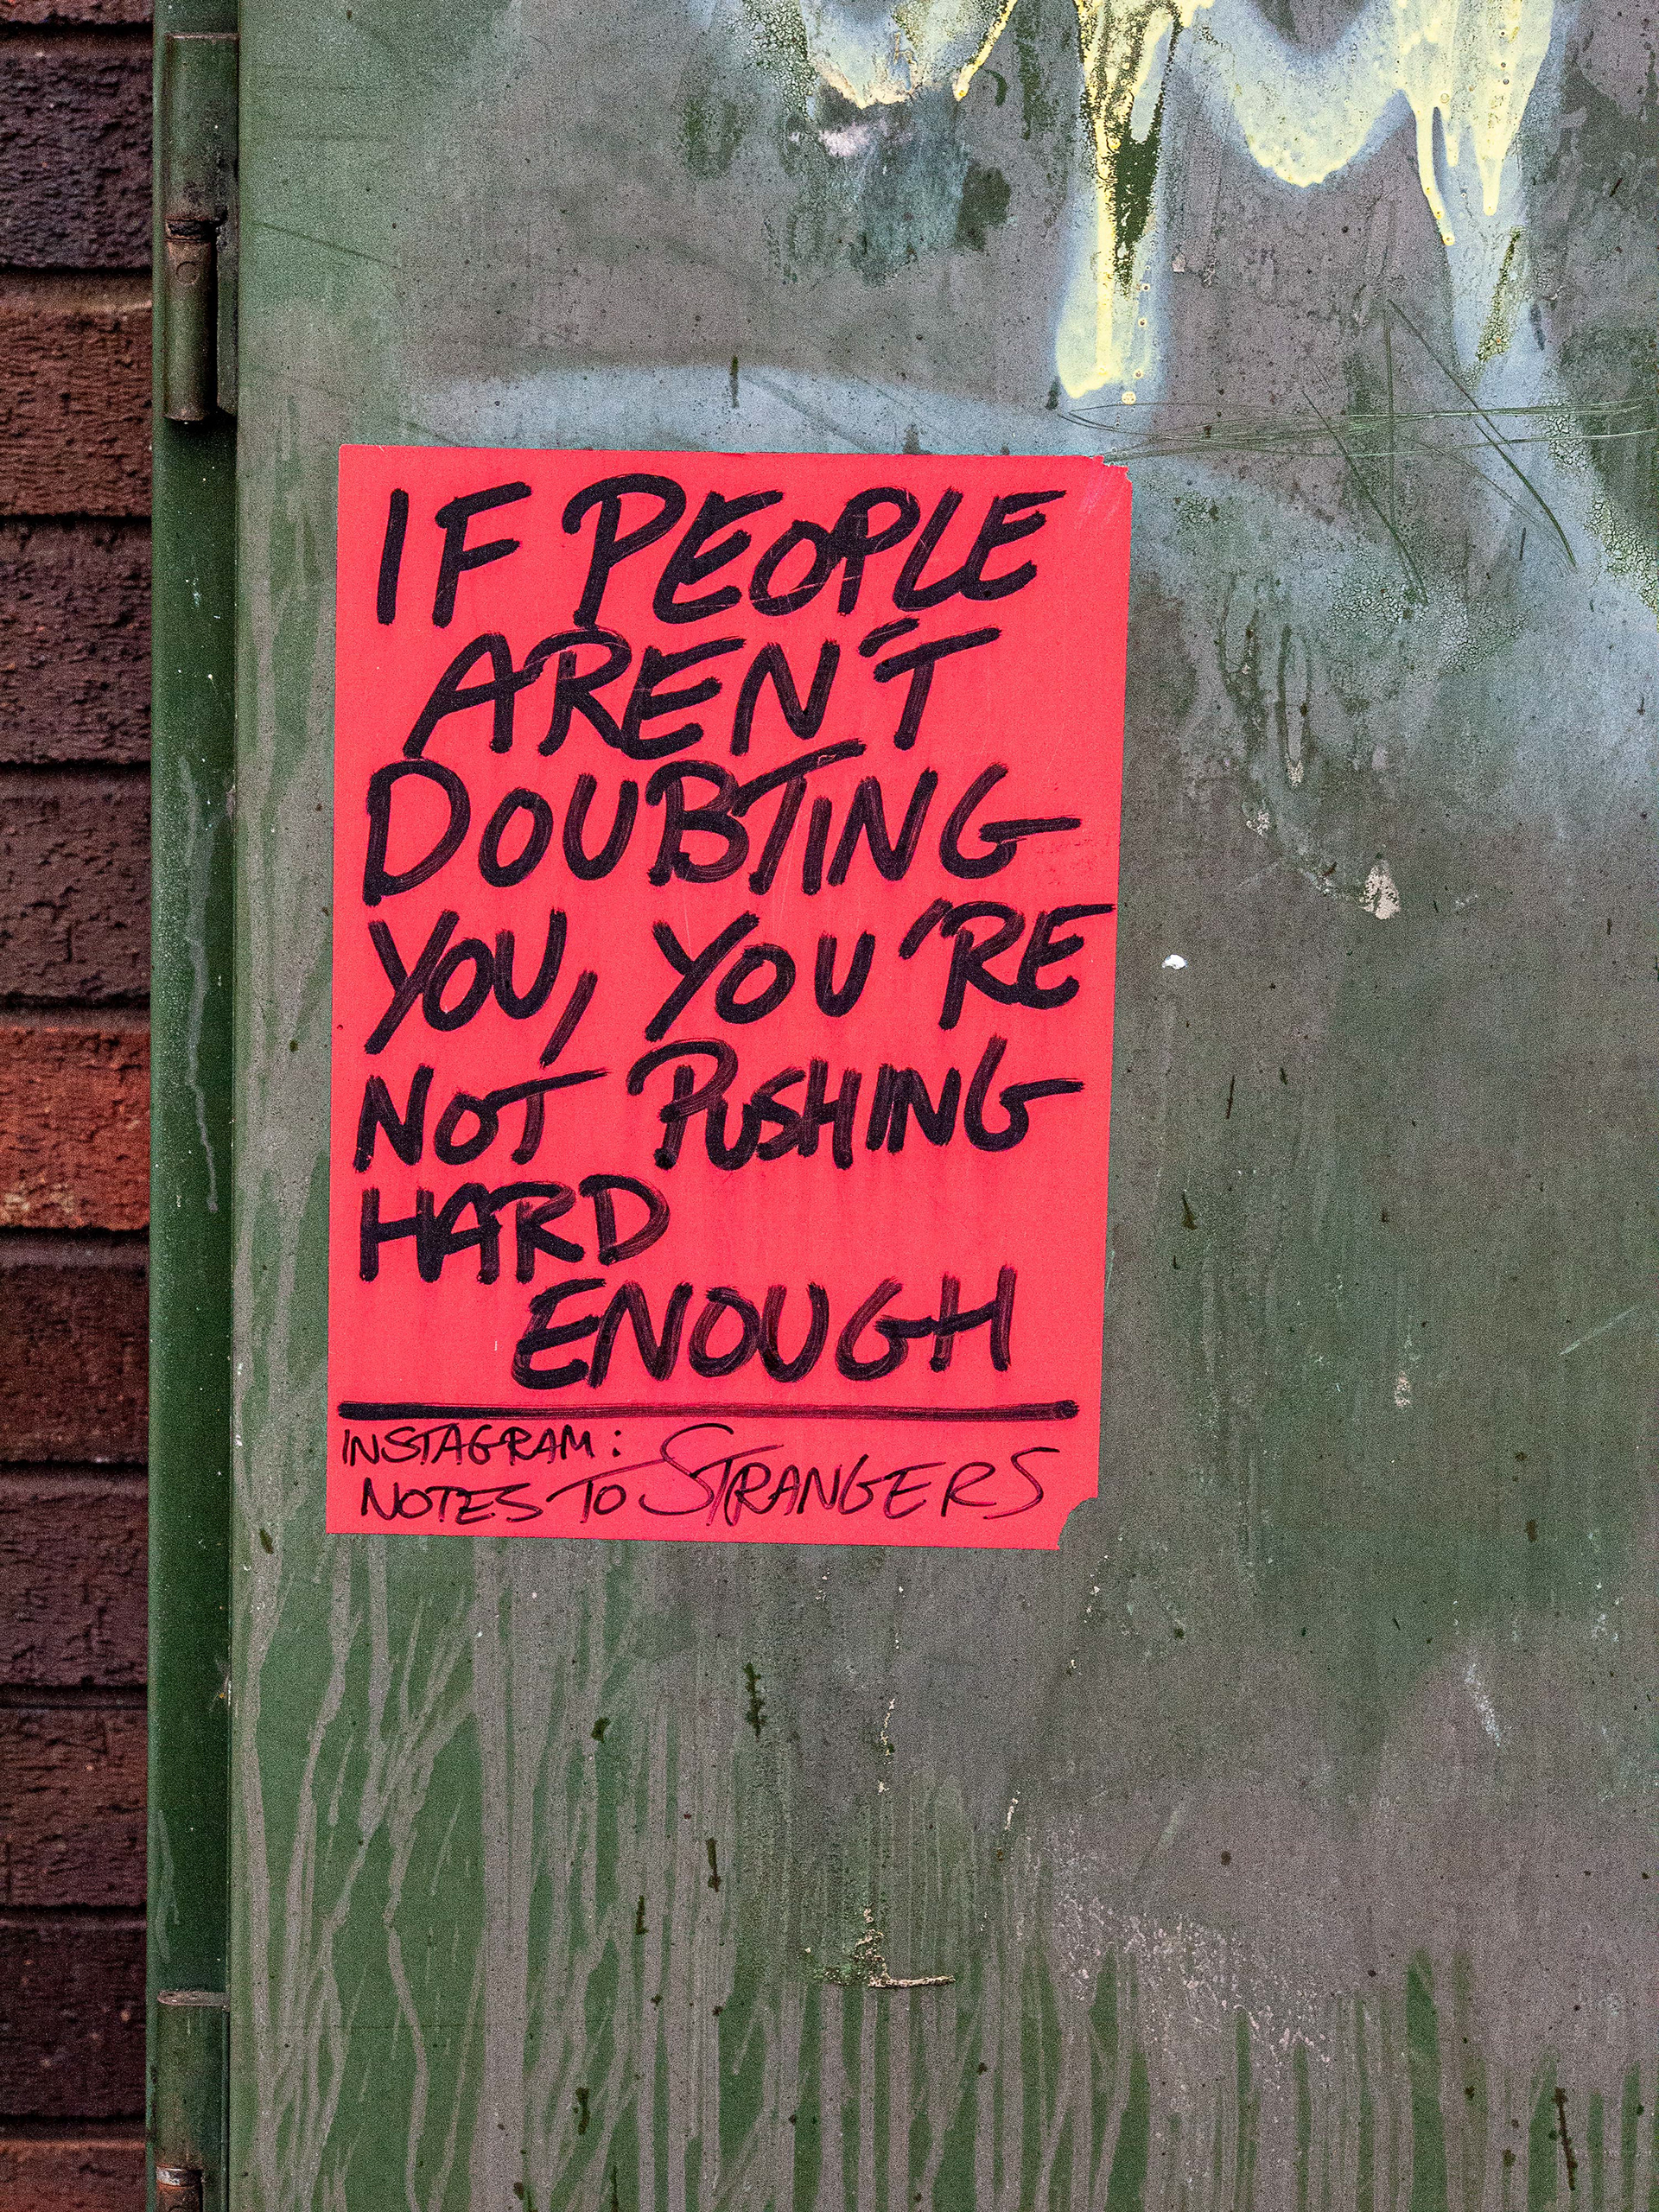 IF PEOPLE
AREN'T
DOUBTING
YOU, YOU'RE
NOT PUSHING
HARD
ENOUGH
INSTAGRAM:
NOTES TO STRANGERS